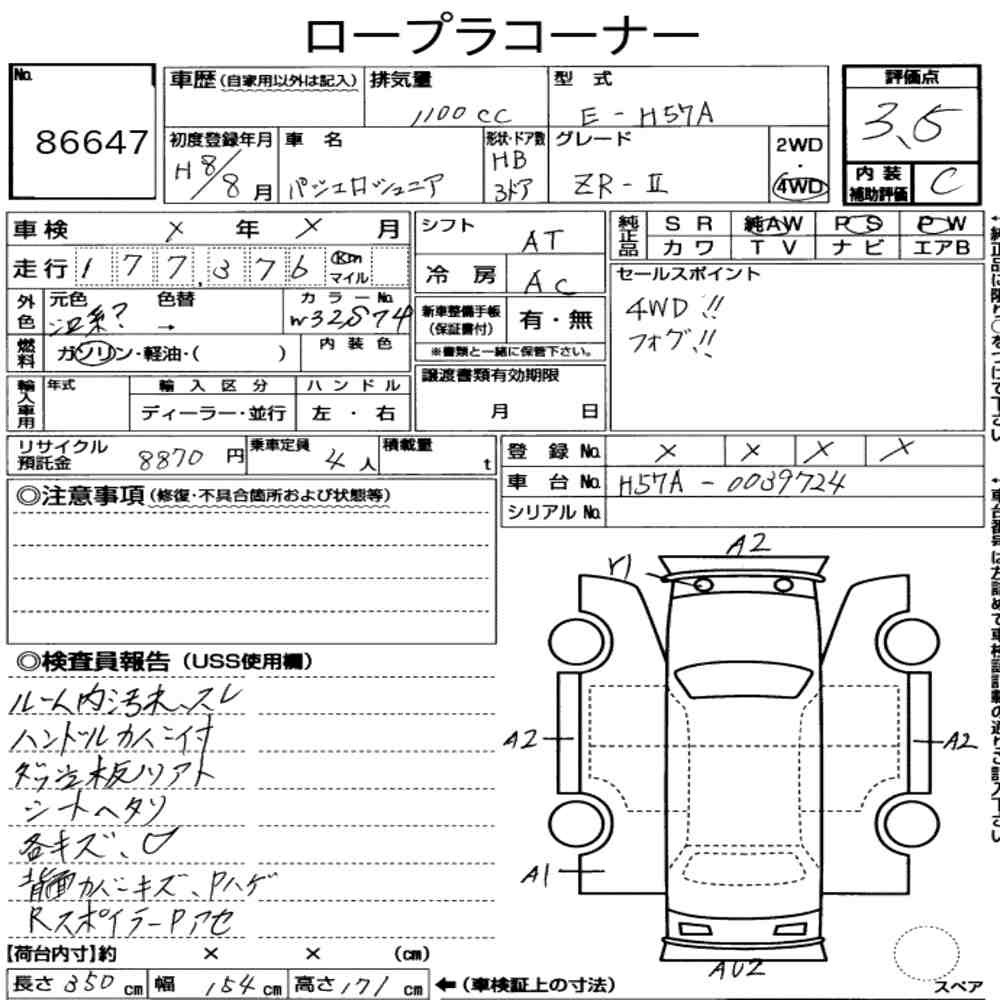 ロープラコーナー
No.
86647
車歴(自家用以外は記入)
排気量
1100cc
型式
E-H57A
評価点
3.5
初度登録年月
H8/8月
車名
パジェロジュニア
形状・ドア数
HB
3ドア
グレード
ZR-II
2WD
・
4WD
内装
補助評価
C
車検 × 年 × 月
走行 177,376 Km マイル
外色 元色 色替 カラーNo.
→ W32S74
燃料 ガソリン・軽油・( ) 内装色
輸入車用 年式 輸入区分 ハンドル
ディーラー・並行 左・右
シフト AT
冷房 AC
新車整備手帳
(保証書付) 有・無
※書類と一緒に保管下さい。
譲渡書類有効期限
月 日
純正品 SR 純AW PS PW
カワ TV ナビ エアB
セールスポイント
4WD!!
フォグ!!
リサイクル
預託金 8870円
乗車定員 4人
積載量 t
登録No. × × × ×
車台No. H57A-0039724
シリアルNo.
◎注意事項(修復・不具合箇所および状態等)
◎検査員報告(USS使用欄)
ルーム内汚れ、スレ
ハンドルカバー付
シートヘタリ
各キズ、
背面カバーキズ、Pハゲ
RスポイラーPアセ
【荷台内寸】約 × × (cm)
長さ350cm 幅154cm 高さ171cm ←(車検証上の寸法)
A2
Y1
A2
A2
A1
AU2
スペア